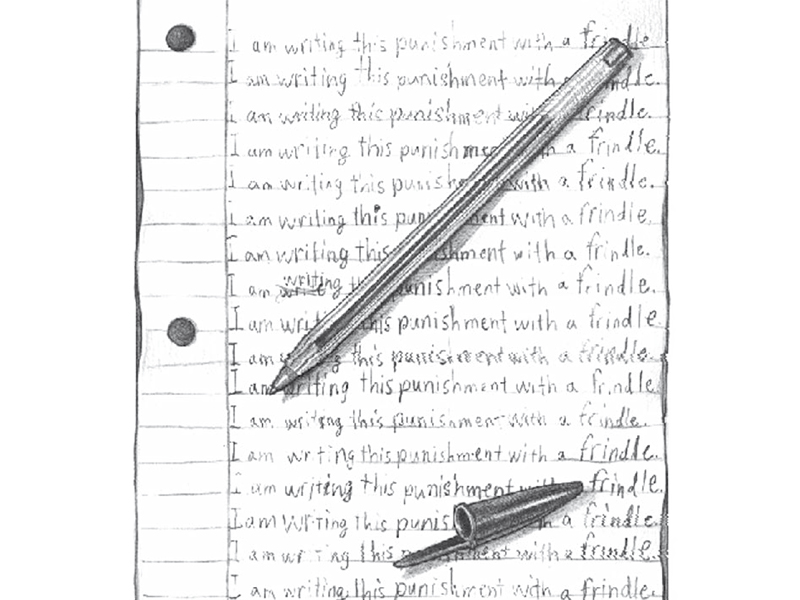 I am writing this punishment with a frindle.
I am writing this punishment with a frindle.
I am writing this punishment with a frindle.
I am writing this punishment with a frindle.
I am writing this punishment with a frindle.
I am writing this punishment with a frindle.
I am writing this punishment with a frindle.
I am writing punishment with a frindle.
I am writing this punishment with a frindle.
I am writing this punishment with a frindle.
I am writing this punishment with a frindle.
I am writing this punishment with a frindle.
I am writing this punishment with a frindle.
I am writing this punishment with a frindle.
I am writing this punishment with a frindle.
I am writing this punishment with a frindle.
I am writing this punishment with a frindle.